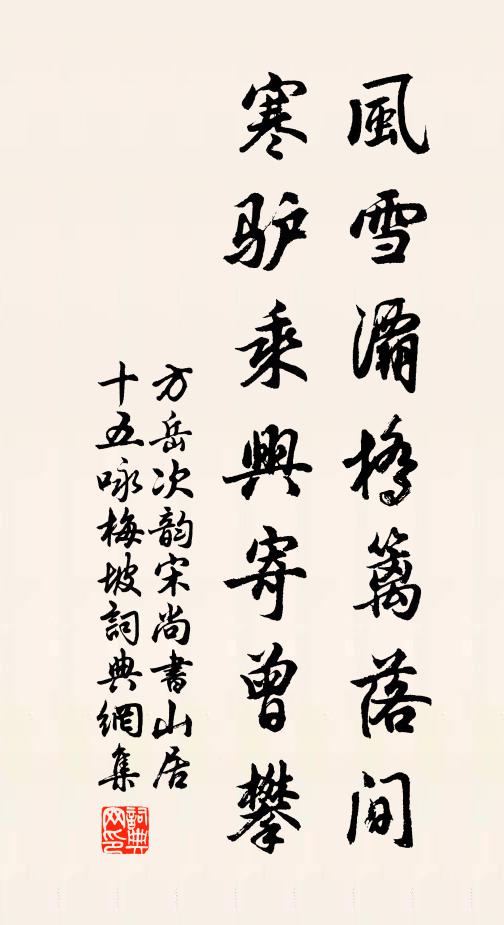 風雪灞橋籬落間
寒驴乘興寄曾攀
方岳次韵宋尚書山居
十五咏梅坡詞典網集
詞典网印